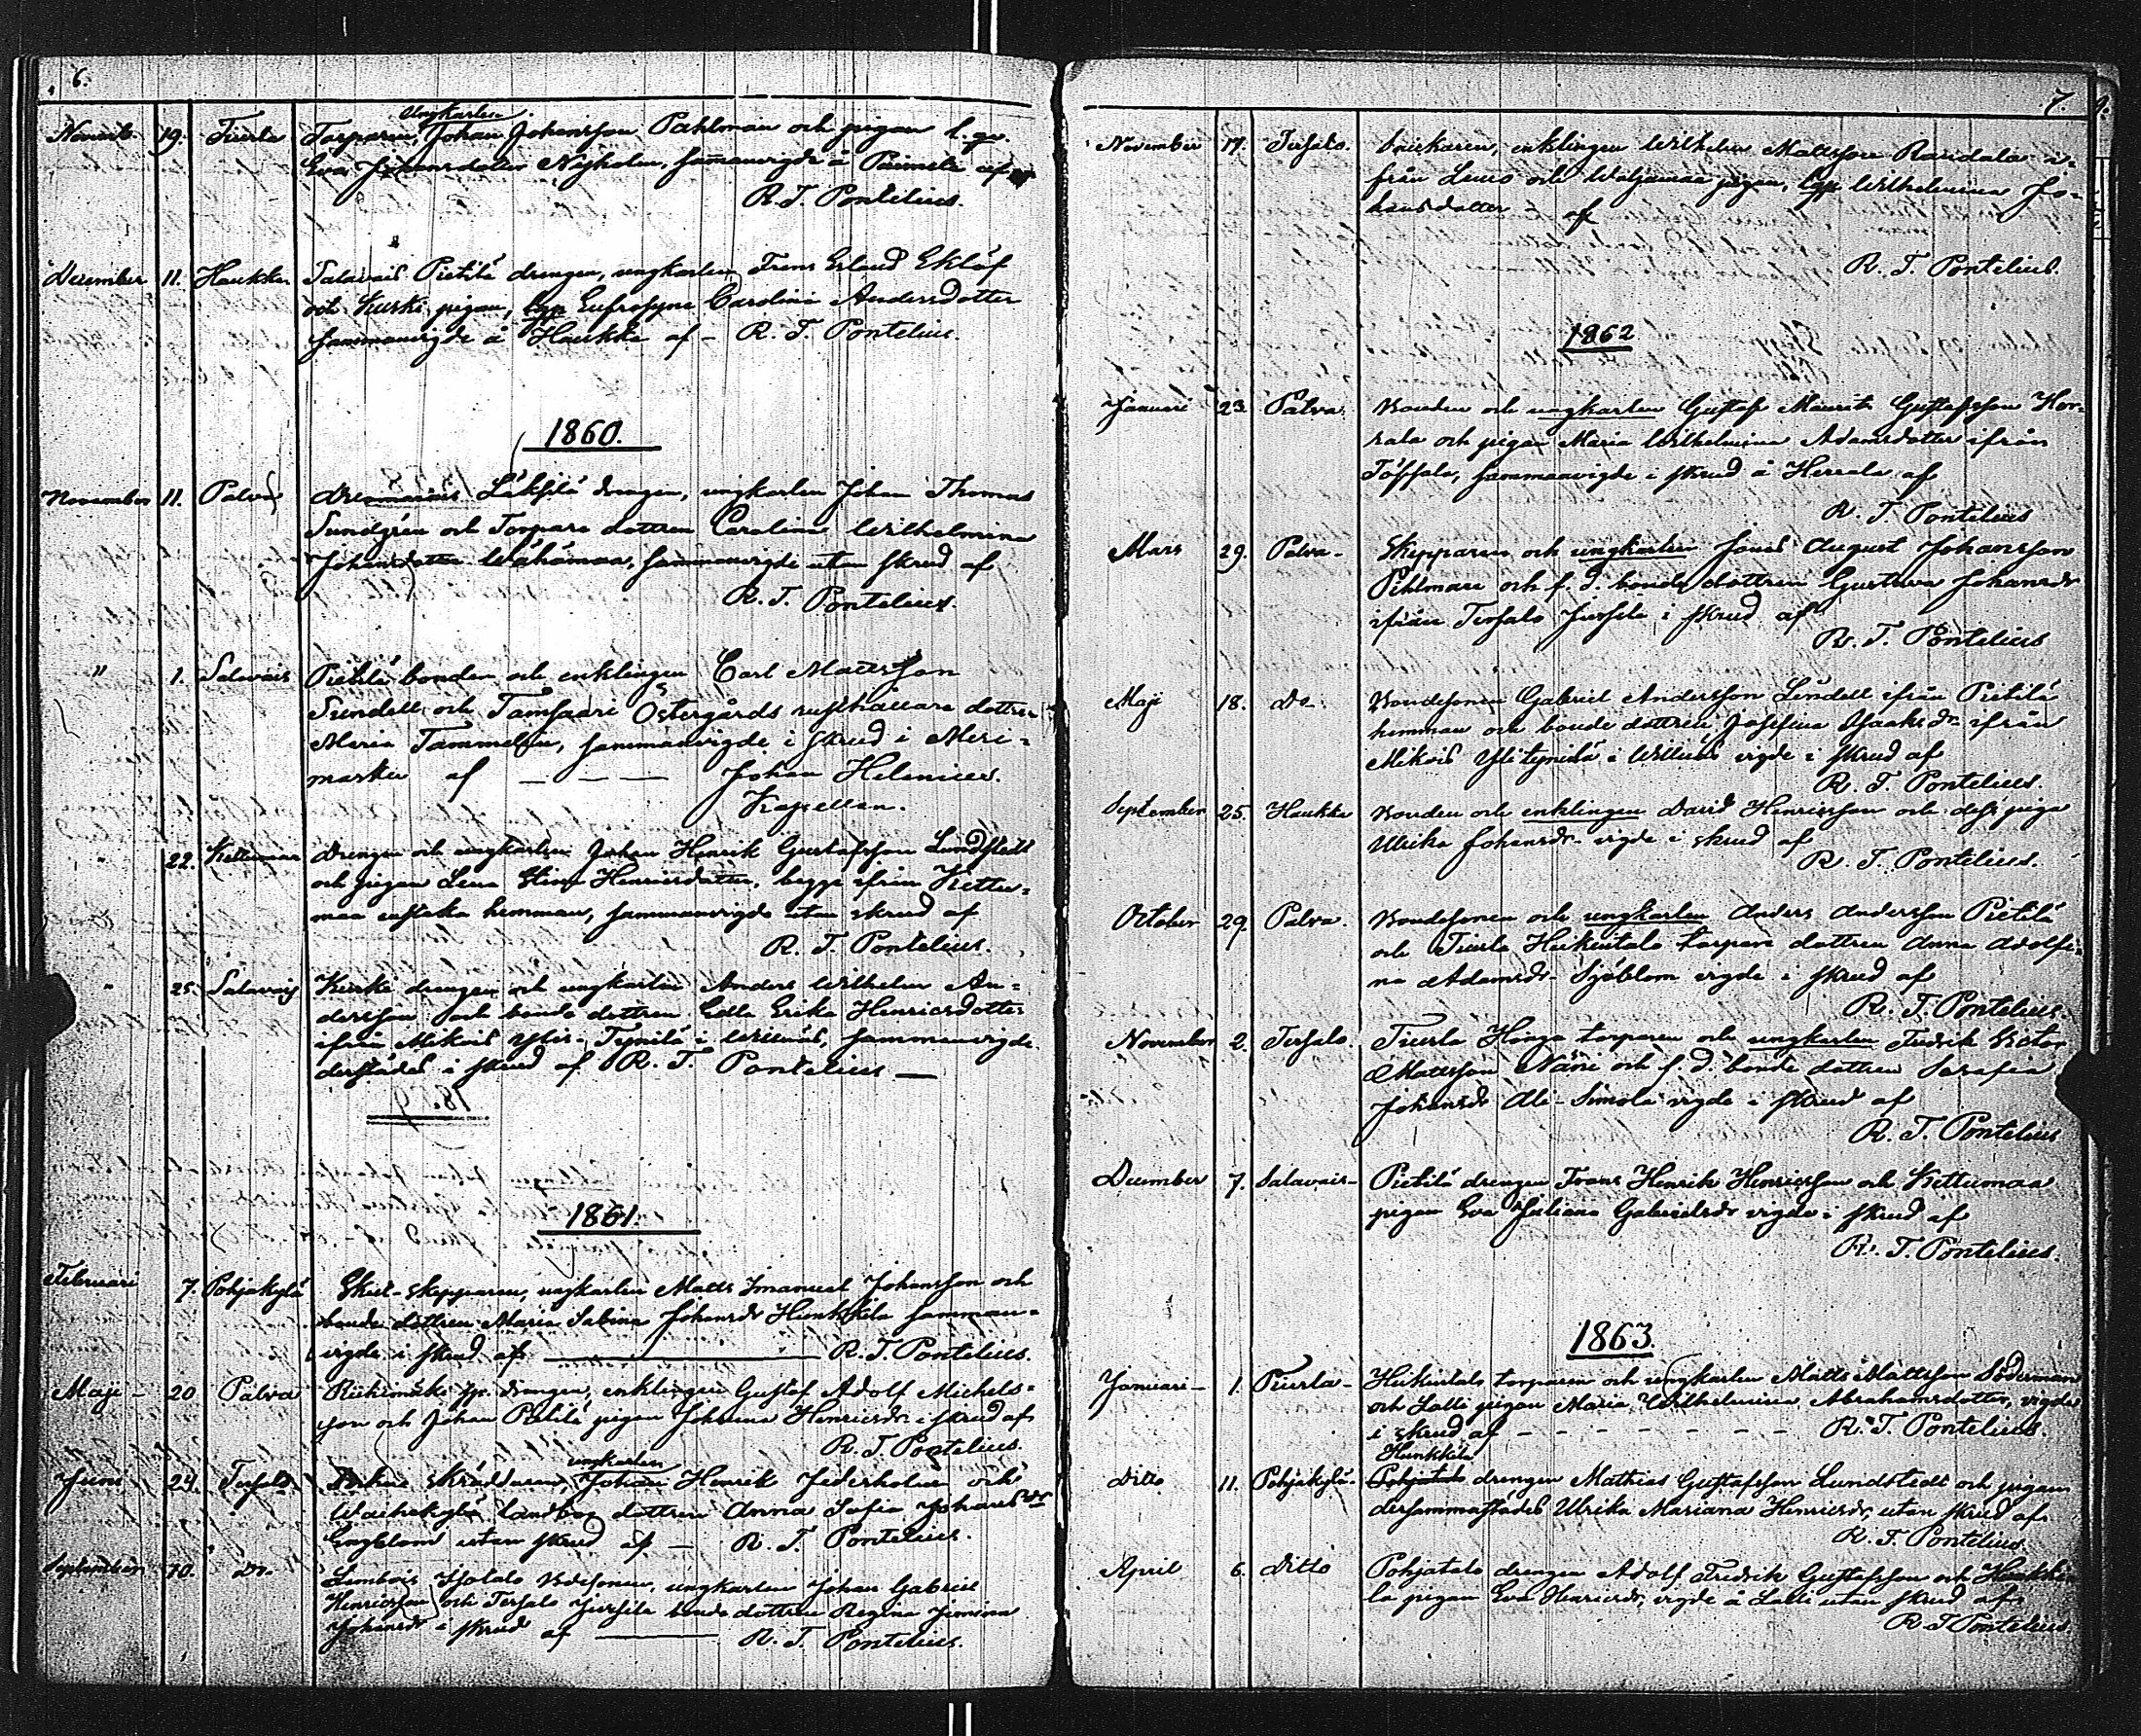 6.
Novemb. 19. Tiurla Torparen, Ungkarlen Johan Johansson Pahlman och pigan h. qv.
Eva Johansdotter Nyholm, sammanvigde å af
R. T. Pontelius.
December 11. Haukka. Salavais Pietilä drengen, ungkarlen Frans Erland Eklöf
och Kurki pigan, Eufrosyne Carolina Andersdotter
sammanvigde å Haukka af – R. T. Pontelius.
1860.
November 11. Palva Läksilä drengen, ungkarlen Johan Thomas
Sundgrén och Torpare dottren Carolina Wilhelmina
Johansdotter Wähämaa, sammanvigde utan skrud af
R. T. Pontelius.
" 1. Salavais Pietilä bonden och enklingen Carl Mattsson
Sundell och Tamsaari Östergårds rusthållare dottren
Maria Tammelin, sammanvigde i skrud i Meri-
masku af — — — Johan Helenius.
Kapellan.
" 22. Kettumaa Drengen och ungkarlen Johan Henrik Gustafsson Lundstedt
och pigan Lena Stina Henricsdotter, begge ifrån Kettu-
maa hemman, sammanvigde utan skrud af
R. T. Pontelius.
" 25. Salavais Kurki drengen och ungkarlen Anders Wilhelm An-
dersson och bonde dottren Edla Erika Henricsdotter
ifrån Mikois Tynilä i Willnäs, sammanvigde
derstädes i skrud af R. T. Pontelius —
1861.
Februari 7. Pohjakylä Skut-skepparen, ungkarlen Matts Imanuel Johansson och
bonde dottren Maria Sabina Johansdr Hunkkila samman-
vigde i skrud af — R. T. Pontelius.
Maji – 20 Palva Riihimäki drengen, enklingen Gustaf Adolf Michels-
son och Johan Pietilä pigan Johanna Henricsdr i skrud af
R. T. Pontelius.
Juni 24. Tersalo skräddaren, ungkarlen Johan Henrik Jederholm och
landbo dottren Anna Sofia Johansdr
Engblom utan skrud af — R. T. Pontelius.
September 10. Do. Isotalo Bdesonen, ungkarlen Johan Gabriel
Henricsson och Tersalo Jursila bonde dottren Regina
Johansdr i skrud af — R. T. Pontelius.
7
November 17. Tersalo. enklingen Wilhelm Mattsson Randala i-
från Lemo och pigan, Wilhelmina Jo-
hansdotter – af
R. T. Pontelius.
1862
Januari 23. Palva. Bonden och ungkarlen Gustaf Maurits Gustafsson Her-
rala och pigan Maria Wilhelmina Adamsdotter ifrån
Töfsala, sammanvigde i skrud å Herrala af
R. T. Pontelius
Mars 29. Palva – Skepparen och ungkarlen Jonas August Johansson
Pihlman och f. d. bonde dottren Gustava Johansdr
ifrån Tersalo Jursila i skrud af
R. T. Pontelius
Maji 18. Do Bondesonen Gabriel Andersson Lindell ifrån Pietilä
hemman och bonde dottren Josefina Isaksdr ifrån
Mikois Yli tynilä i Willnäs vigde i skrud af
R. T. Pontelius.
September 25. Haukka Bonden och enklingen David Henricsson och dess piga
Ulrika Johansdr vigde i skrud af
R. T. Pontelius.
October 29. Palva. Bondesonen och ungkarlen Anders Andersson Pietilä
och Tiurla Heikintalo torpare dottren Anna Adolfi-
na Adamsdr Sjöblom vigde i skrud af
R. T. Pontelius
November 2. Tersalo. Tiurla Honga torparen och ungkarlen Fredrik Victor
Mattsson och f. d. bonde dottren Serafia
Johansdr Ali-Simola vigde i skrud af
R. T. Pontelius
December 7. Salavais – Pietilä drengen Frans Henrik Henricsson och Kettumaa
pigan Eva Juliana Gabrielsdr vigde i skrud af
R. T. Pontelius.
1863.
Januari – 1. Tiurla – Heikintalo torparen och ungkarlen Matts Mattsson Söderman
och Lalli pigan Maria Wilhelmina Abrahamsdotter, vigde
i skrud af – – – – – – – R. T. Pontelius.
Ditto 11. Pohjakylä – Hunkkila Pohjatalo drengen Mathias Gustafsson Lundstedt och pigan
dersammastädes Ulrika Mariana Henricsdr, utan skrud af
R. T. Pontelius.
April 6. Ditto Pohjatalo drengen Adolf Fredrik Gustafsson och Hunkki-
la pigan Eva Henricsdr, vigde å Lalli utan skrud af
R. T. Pontelius.